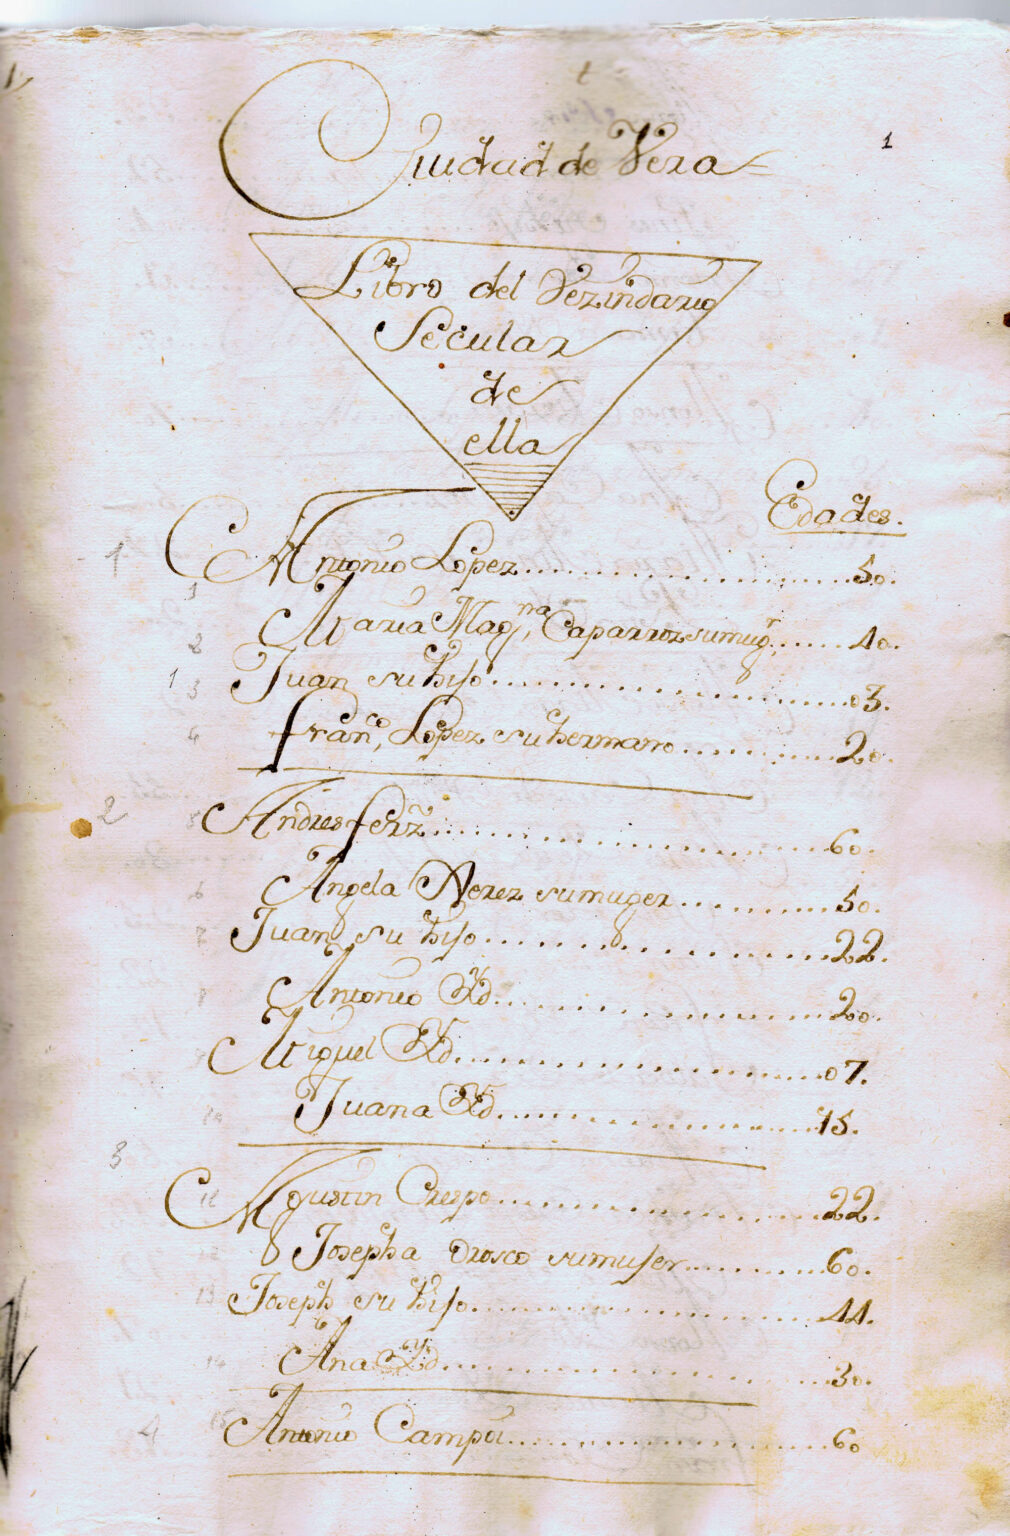 1
Ciudad de Vera
Libro del Vezindario
Secular
de
ella
Edades.
1 Antonio Lopez 50.
2 Maria Mag.na Caparroz su mug.r 40.
1 3 Juan su hijo 03.
4 fran.co Lopez su hermano 20.
2 5 Andres ferz 60.
6 Angela Perez su muger 50.
7 Juan su hijo 22.
8 Antonio Yd 20.
Miguel Yd 07.
10 Juana Yd 15.
3
11 Agustin Crespo 22.
12 Josepha Orosco su mujer 60.
13 Joseph su hijo 44.
14 Ana Yd 30.
4 15 Antonio Campoi 60